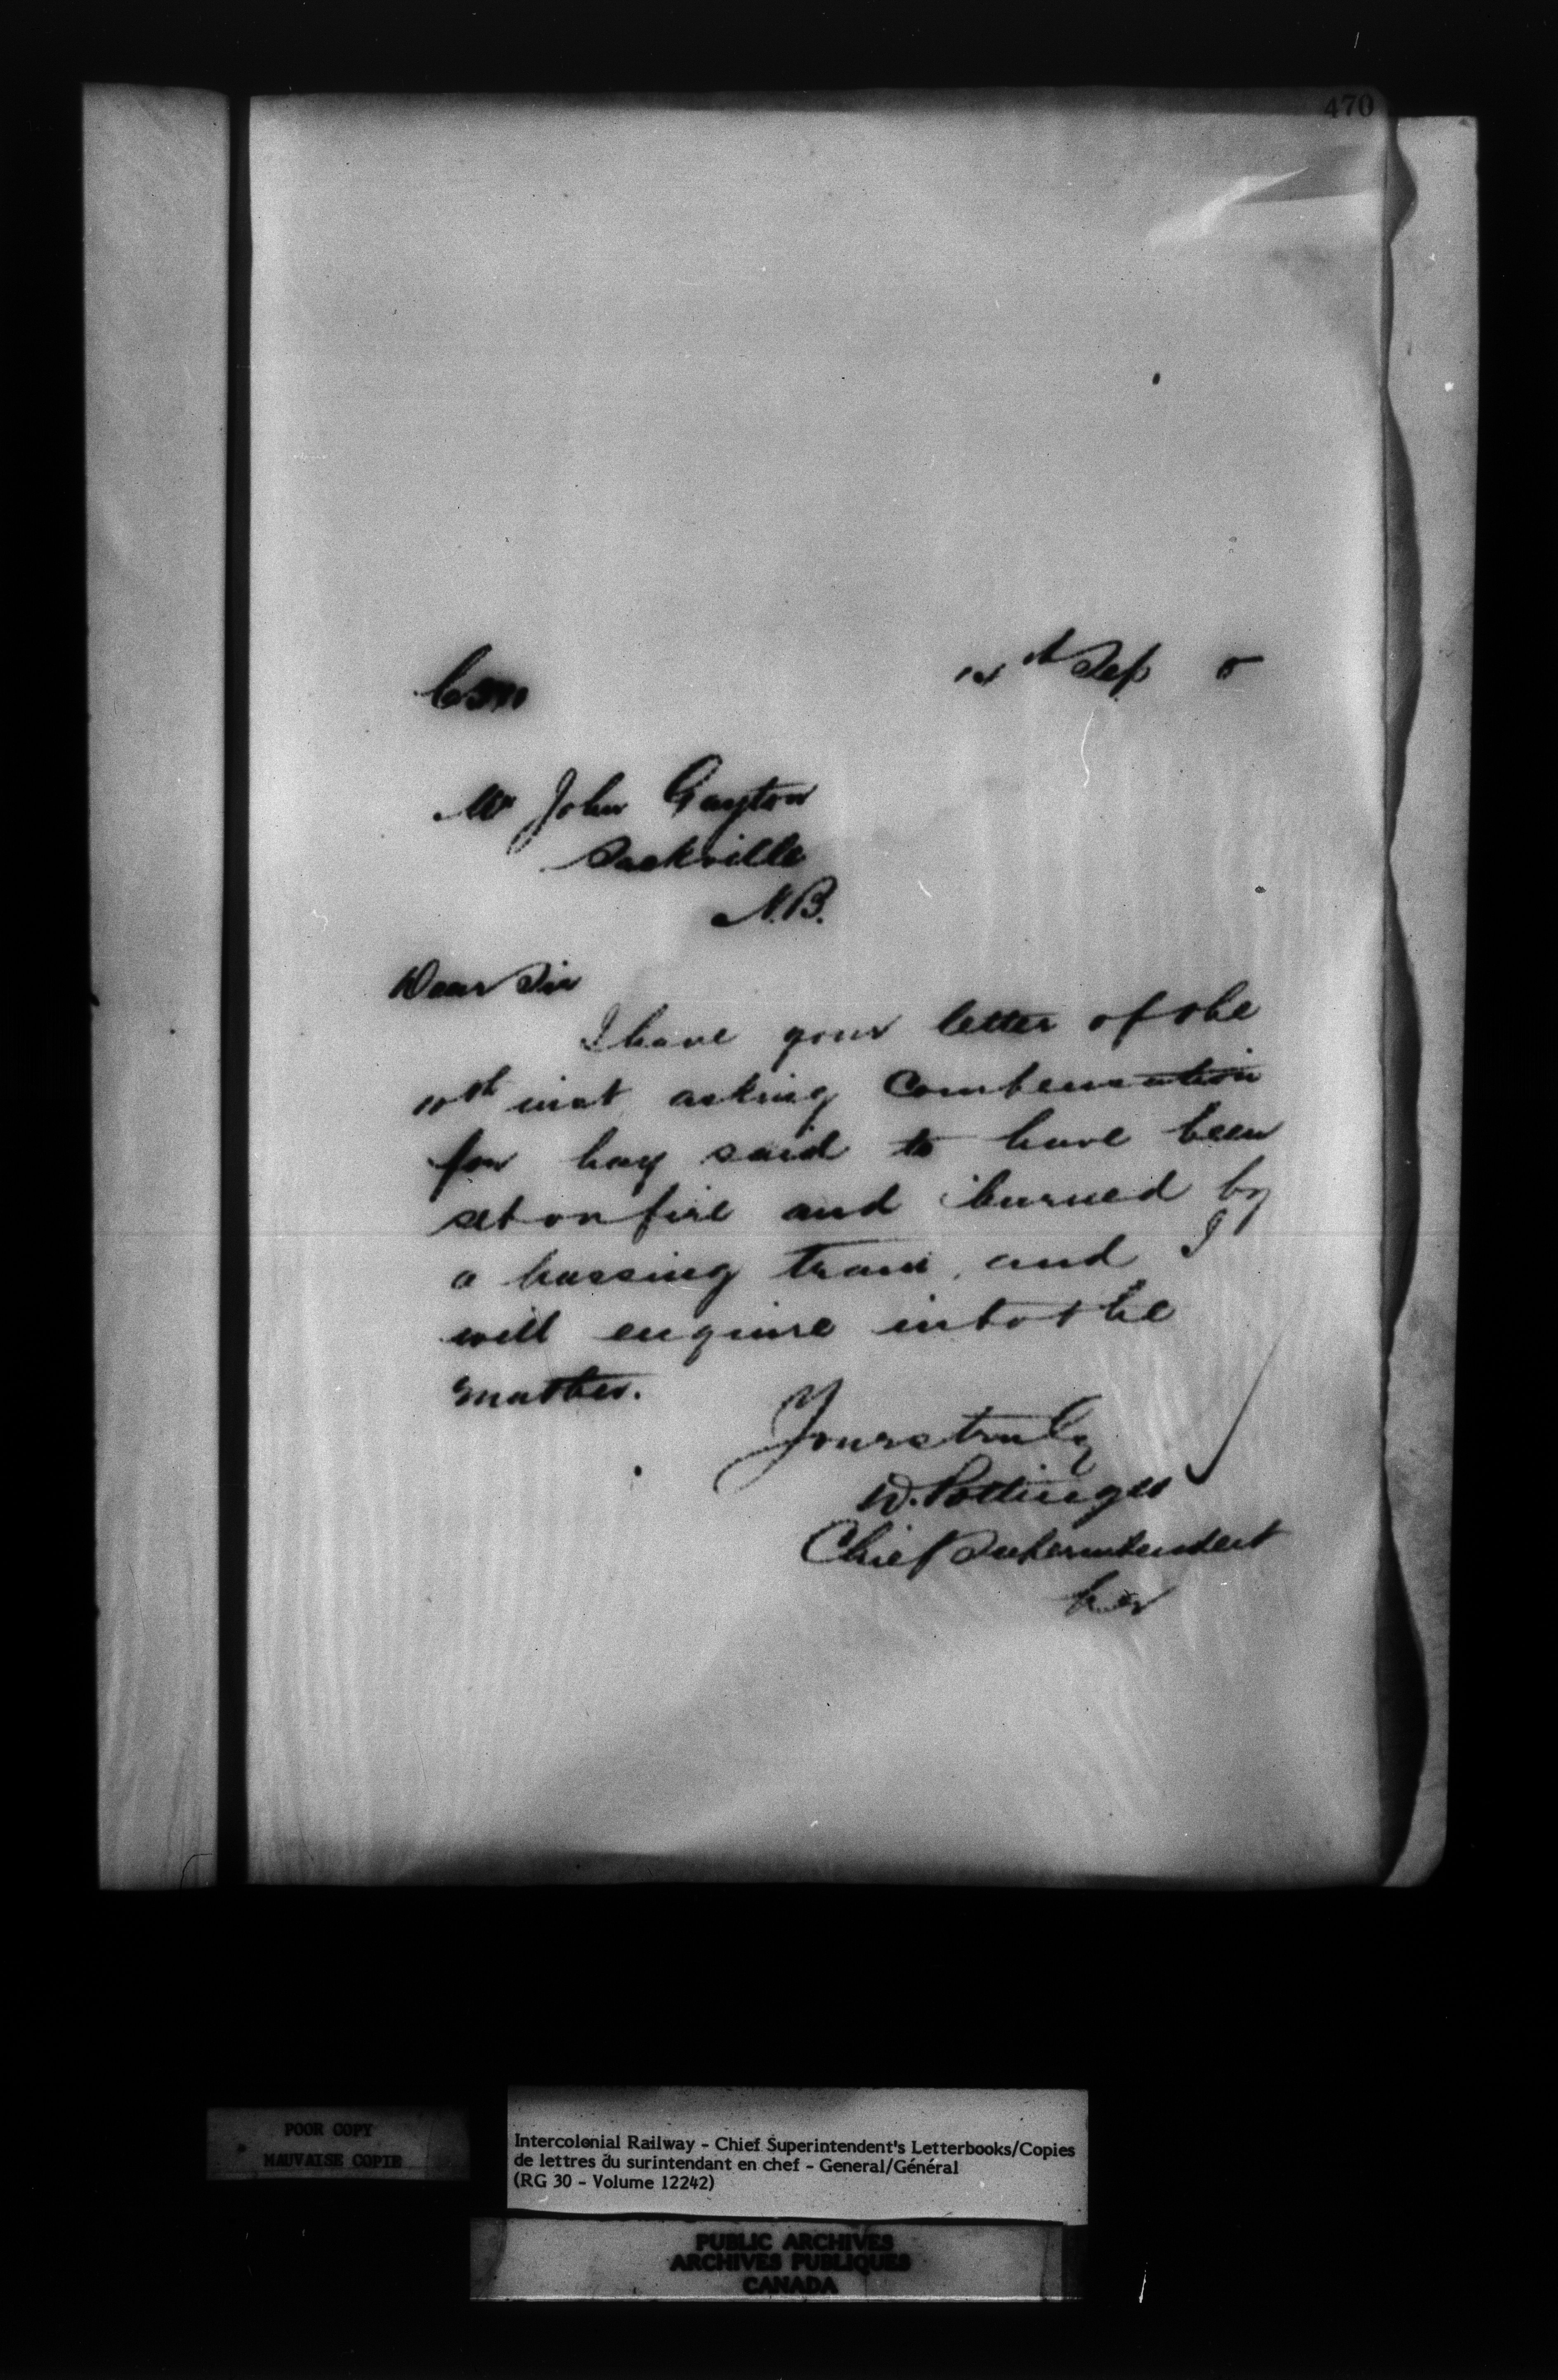 470
th Sep 5
Mr John Gayton
Sackville
N.B.
Dear Sir
I have your letter of the
10th inst asking Compensation
for hay said to have been
set on fire and burned by
a passing train, and I
will enquire into the
matter.
Yours truly
D. Pottinger
Chief Superintendent
POOR COPY
MAUVAISE COPIE
Intercolonial Railway - Chief Superintendent's Letterbooks/Copies
de lettres du surintendant en chef - General/Général
(RG 30 - Volume 12242)
PUBLIC ARCHIVES
ARCHIVES PUBLIQUES
CANADA